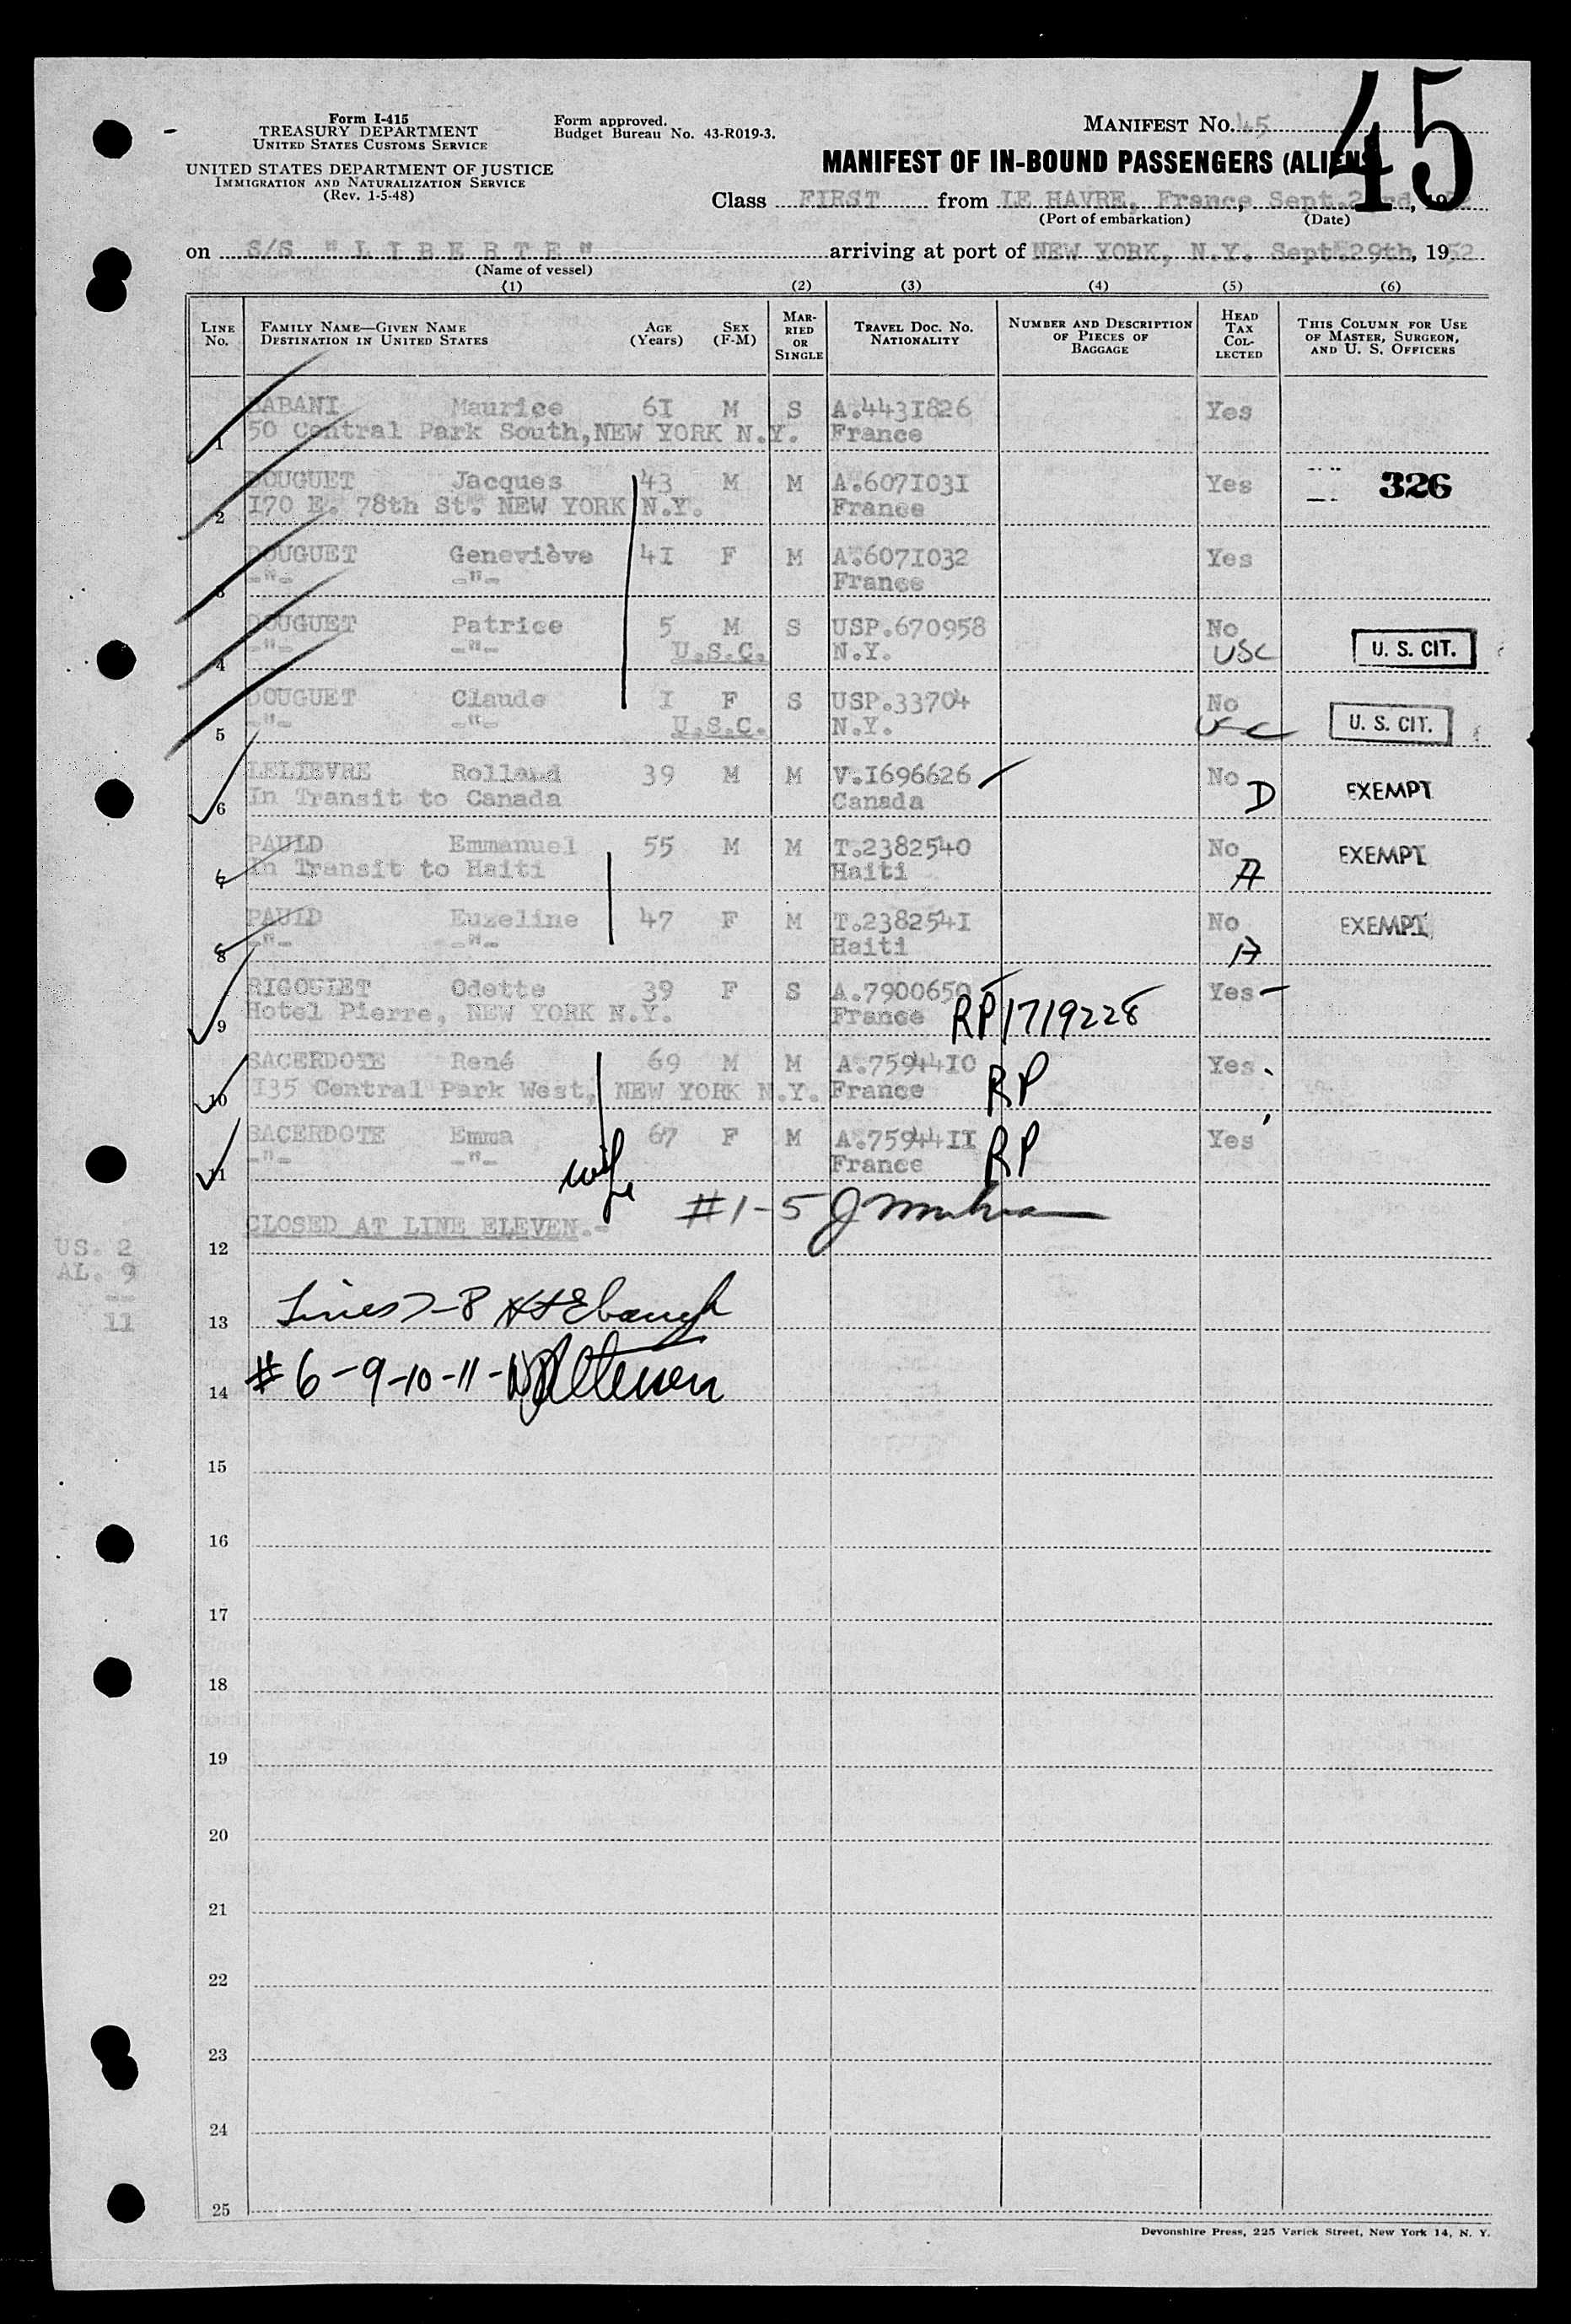 45
Form I-415
TREASURY DEPARTMENT
UNITED STATES CUSTOMS SERVICE
UNITED STATES DEPARTMENT OF JUSTICE
IMMIGRATION AND NATURALIZATION SERVICE
(Rev. 1-5-48)
Form approved.
Budget Bureau No. 43-R019-3.
MANIFEST NO. 45
MANIFEST OF IN-BOUND PASSENGERS (ALIENS)
Class FIRST from LE HAVRE, France, Sept. 23rd, 19
(Port of embarkation) (Date)
on S/S "LIBERTE" arriving at port of NEW YORK, N.Y. Sept. 29th, 1952
(Name of vessel)
(1) (2) (3) (4) (5) (6)
LINE No. FAMILY NAME—GIVEN NAME DESTINATION IN UNITED STATES AGE (Years) SEX (F-M) MARRIED OR SINGLE TRAVEL DOC. NO. NATIONALITY NUMBER AND DESCRIPTION OF PIECES OF BAGGAGE HEAD TAX COLLECTED THIS COLUMN FOR USE OF MASTER, SURGEON, AND U. S. OFFICERS
BABANI Maurice 61 M S A.4431826 Yes
1 50 Central Park South, NEW YORK N.Y. France
DOUGUET Jacques 43 M M A.6071031 Yes 326
2 170 E. 78th St. NEW YORK N.Y. France
DOUGUET Geneviève 41 F M A.6071032 Yes
3 -"- -"- France
DOUGUET Patrice 5 M S USP.670958 No
4 -"- -"- U.S.C. N.Y. USC U. S. CIT.
DOUGUET Claude 1 F S USP.33704 No
5 -"- -"- U.S.C. N.Y. USC U. S. CIT.
LELIEVRE Rolland 39 M M V.1696626 No
6 In Transit to Canada Canada D EXEMPT
PAULD Emmanuel 55 M M T.2382540 No
7 In Transit to Haiti Haiti A EXEMPT
PAULD Euzeline 47 F M T.2382541 No
8 -"- -"- Haiti A EXEMPT
RIGOULET Odette 39 F S A.7900650 Yes
9 Hotel Pierre, NEW YORK N.Y. France RP 1719228
SACERDOTE René 69 M M A.7594410 Yes
10 135 Central Park West, NEW YORK N.Y. France RP
SACERDOTE Emma 67 F M A.7594411 Yes
11 -"- -"- France RP
wife
#1-5
12 CLOSED AT LINE ELEVEN.-
US. 2
AL. 9
--
11
13 Lines 7-8
14 #6-9-10-11-
15
16
17
18
19
20
21
22
23
24
25
Devonshire Press, 225 Varick Street, New York 14, N. Y.